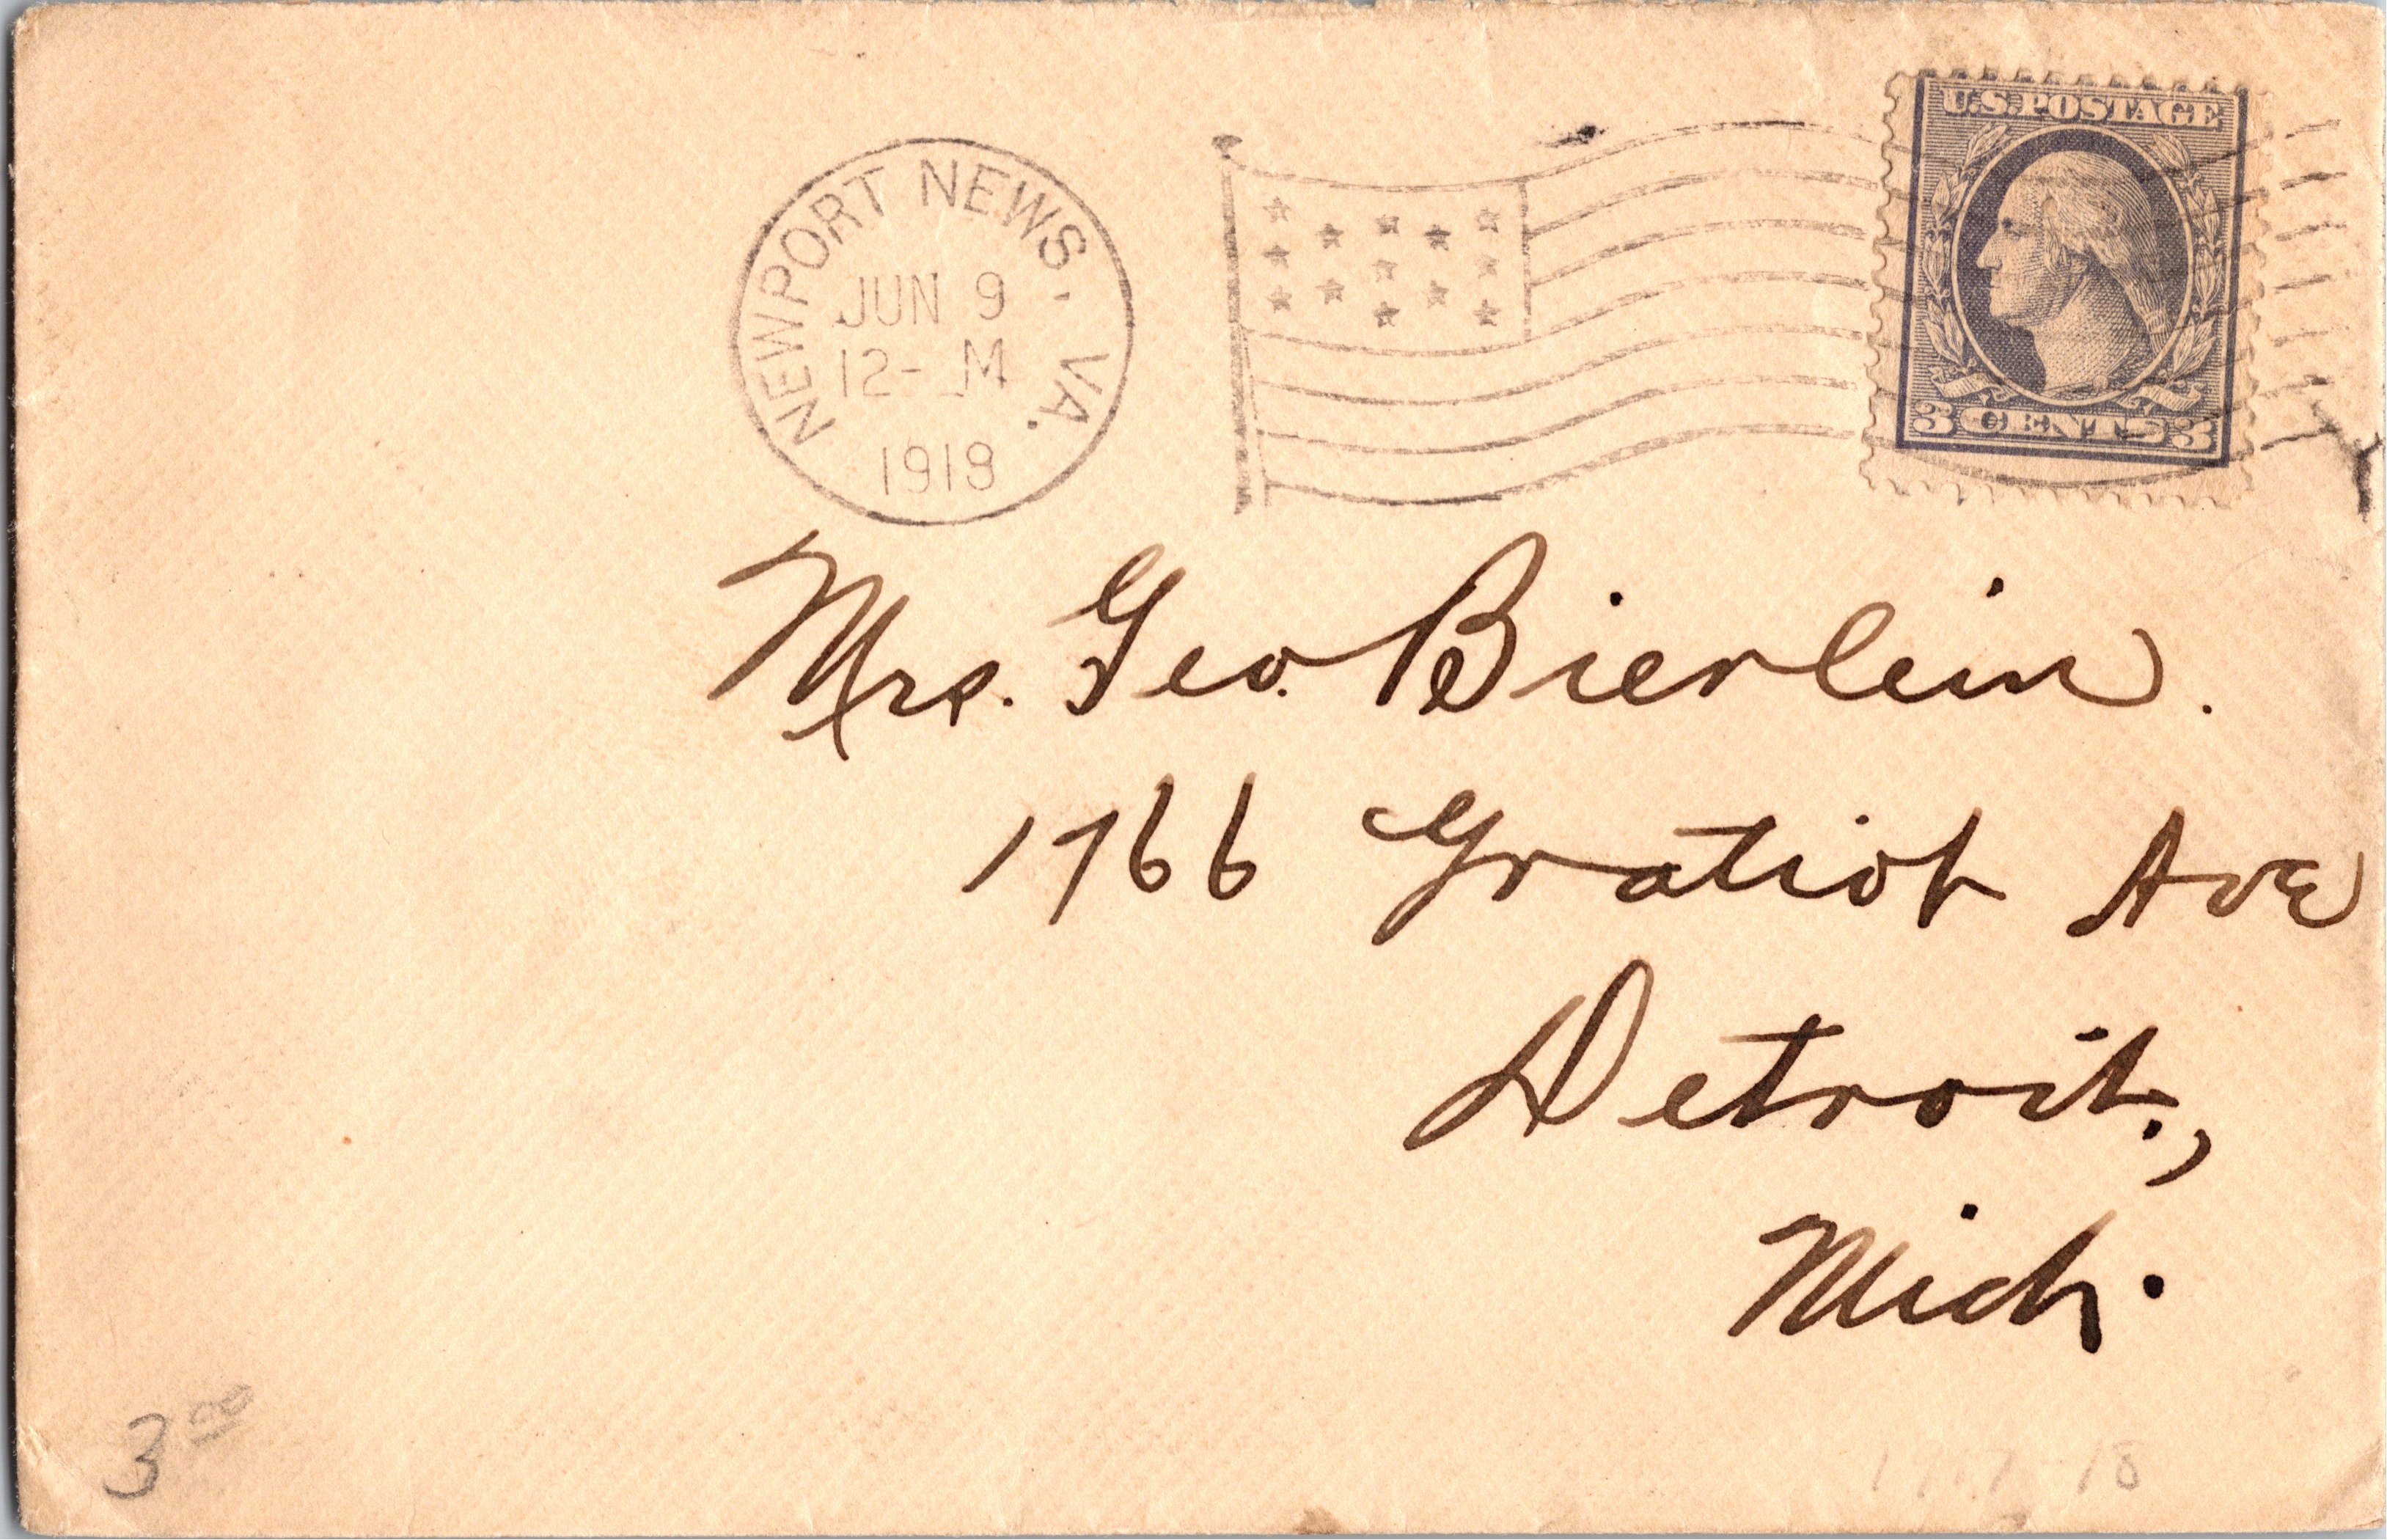 NEWPORT NEWS, VA.
JUN 9
12- M
1918
U.S. POSTAGE
3 CENTS 3
Mrs. Geo. Bierlein.
1766 Gratiot Ave
Detroit.,
Mich.
3 00